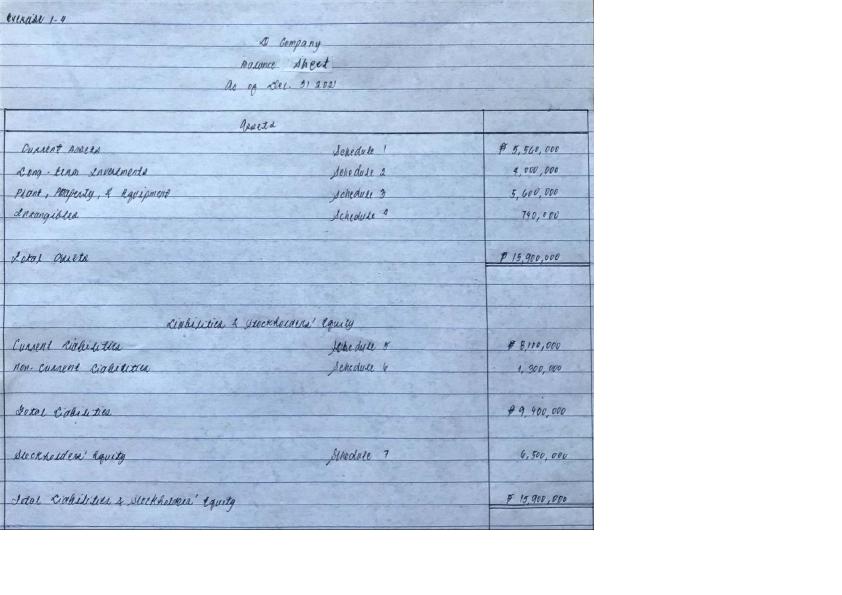 Exercise 1-4
D Company
Balance Sheet
As of Dec. 31 2021
Assets
Current Assets Schedule 1 ₱ 5,560,000
Long-term Investments Schedule 2 4,000,000
Plant, Property, & Equipment Schedule 3 5,600,000
Intangibles Schedule 4 740,000
Total Assets ₱ 15,900,000
Liabilities & Stockholders' Equity
Current Liabilities Schedule 5 ₱ 8,100,000
Non-Current Liabilities Schedule 6 1,300,000
Total Liabilities ₱ 9,400,000
Stockholders' Equity Schedule 7 6,500,000
Total Liabilities & Stockholders' Equity ₱ 15,900,000